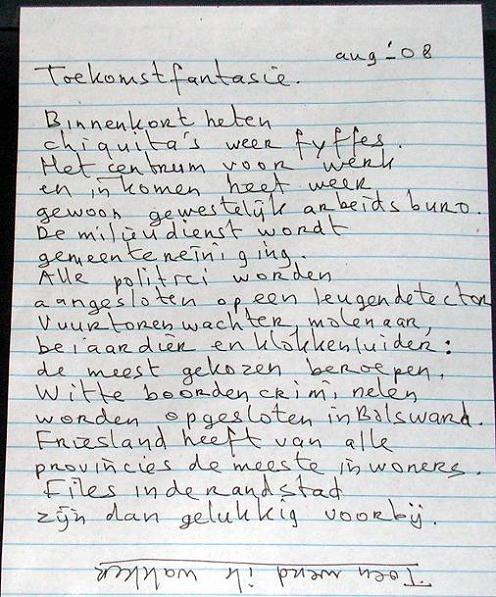 aug '08
Toekomstfantasie.
Binnenkort heten
chiquita's weer fyffes.
Het centrum voor werk
en inkomen heet weer
gewoon gewestelijk arbeidsburo.
De milieudienst wordt
gemeentereiniging.
Alle politici worden
aangesloten op een leugendetector
Vuurtorenwachter, molenaar,
beiaardier en klokkenluider:
de meest gekozen beroepen.
Witte boordencriminelen
worden opgesloten in Bolsward.
Friesland heeft van alle
provincies de meeste inwoners.
Files in de randstad
zijn dan gelukkig voorbij.
Toen werd ik wakker